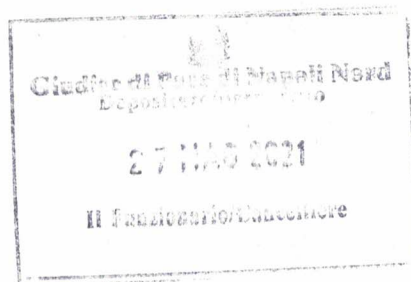 Giudice di Pace di Napoli Nord
27 MAG 2021
Il Funzionario/Cancelliere